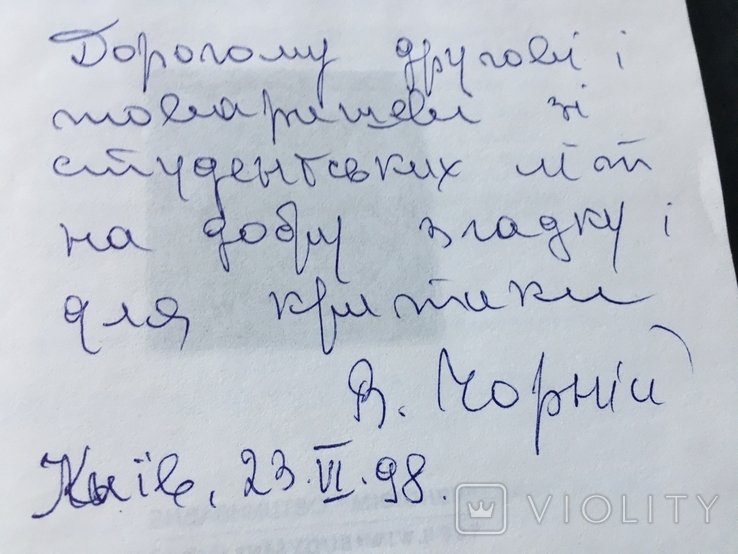 Дорогому другові і
товаришеві зі
студентських літ
на добру згадку і
для критики
В. Чорній
Київ, 23.VI.98.
VIOLITY